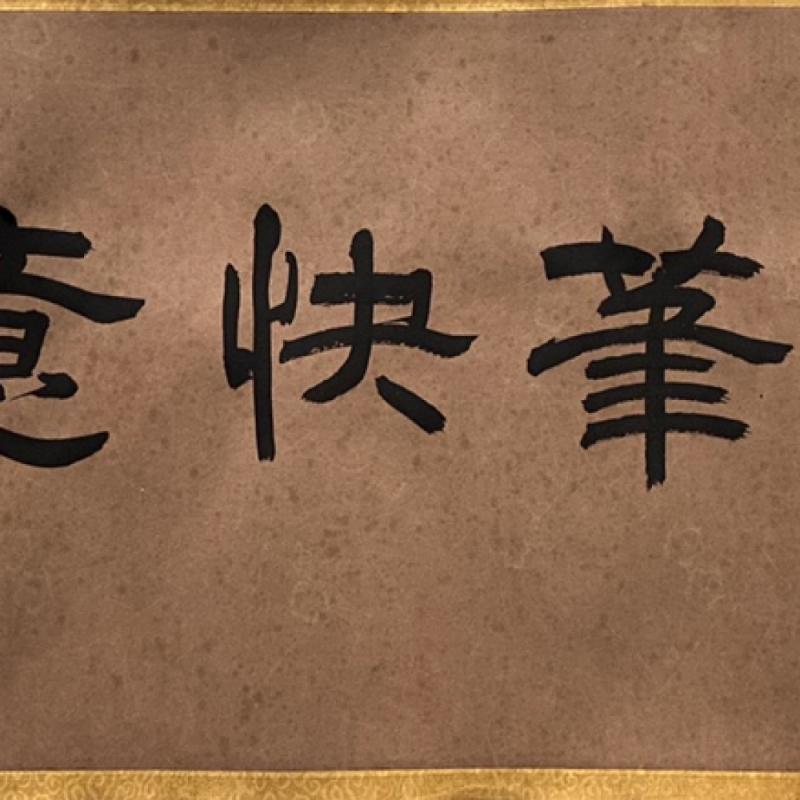 筆快意